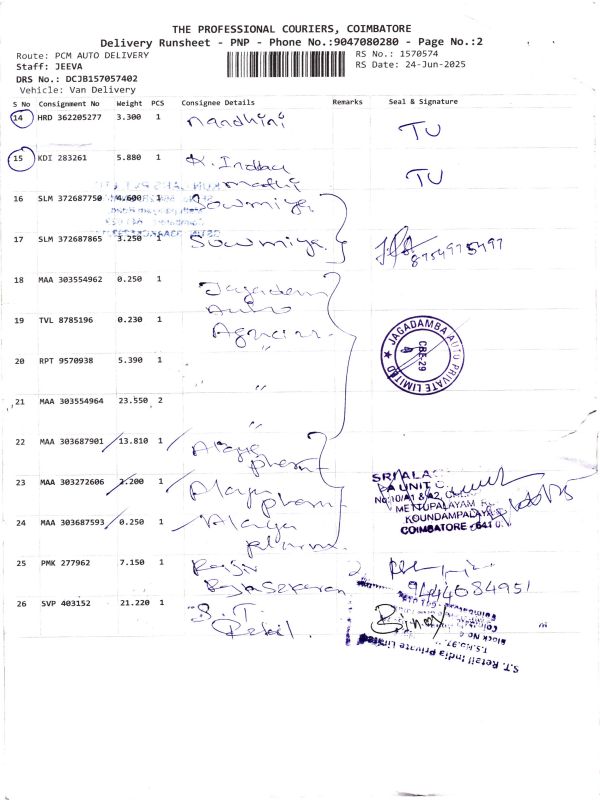 THE PROFESSIONAL COURIERS, COIMBATORE
Delivery Runsheet - PNP - Phone No.:9047080280 - Page No.:2
Route: PCM AUTO DELIVERY RS No.: 1570574
Staff: JEEVA RS Date: 24-Jun-2025
DRS No.: DCJB157057402
Vehicle: Van Delivery
S No Consignment No Weight PCS Consignee Details Remarks Seal & Signature
14 HRD 362205277 3.300 1 Nandhini TU
15 KDI 283261 5.880 1 K. Indhu TU
mathi
16 SLM 372687750 4.600 1 Sowmiya
17 SLM 372687865 3.250 1 Sowmiya 8754975497
18 MAA 303554962 0.250 1 Jagadam
Auto
19 TVL 8785196 0.230 1 Agencies
JAGADAMBA AUTO PRIVATE LIMITED
CBE-29
20 RPT 9570938 5.390 1 "
21 MAA 303554964 23.550 2 "
22 MAA 303687901 13.810 1 Alaya
pharm
23 MAA 303272606 3.200 1 Alaya
pharm
SRI ALA
PA UNIT
No:10/A1 & A2,
METTUPALAYAM
KOUNDAMPALAYA
COIMBATORE - 641 0
24 MAA 303687593 0.250 1 Alaya
pharm.
25 PMK 277962 7.150 1 Raja
Rajasekaran
9444084951
26 SVP 403152 21.220 1 S.T.
Retail. Binoy
Block No
T.S.No.97
S.T. Retail India Private Limited